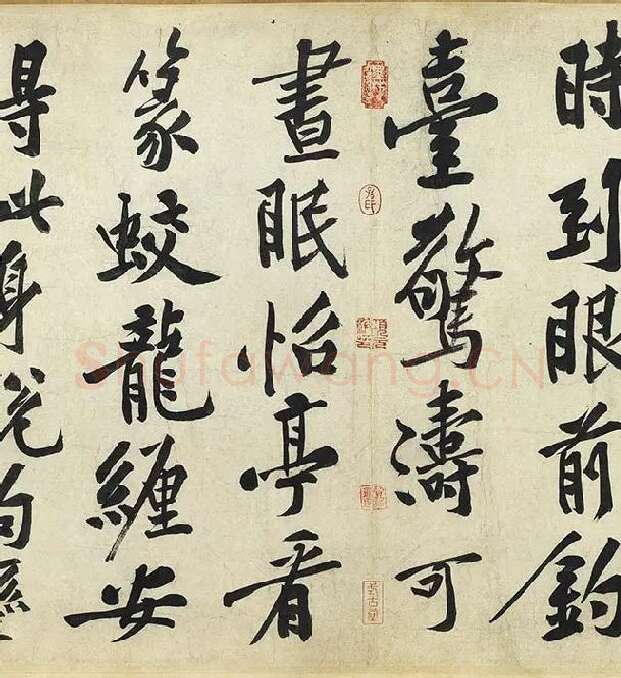 時到眼前釣
臺驚濤可
晝眠怡亭看
篆蛟龍纏安
得此身脫拘攣
Shufawang.CN